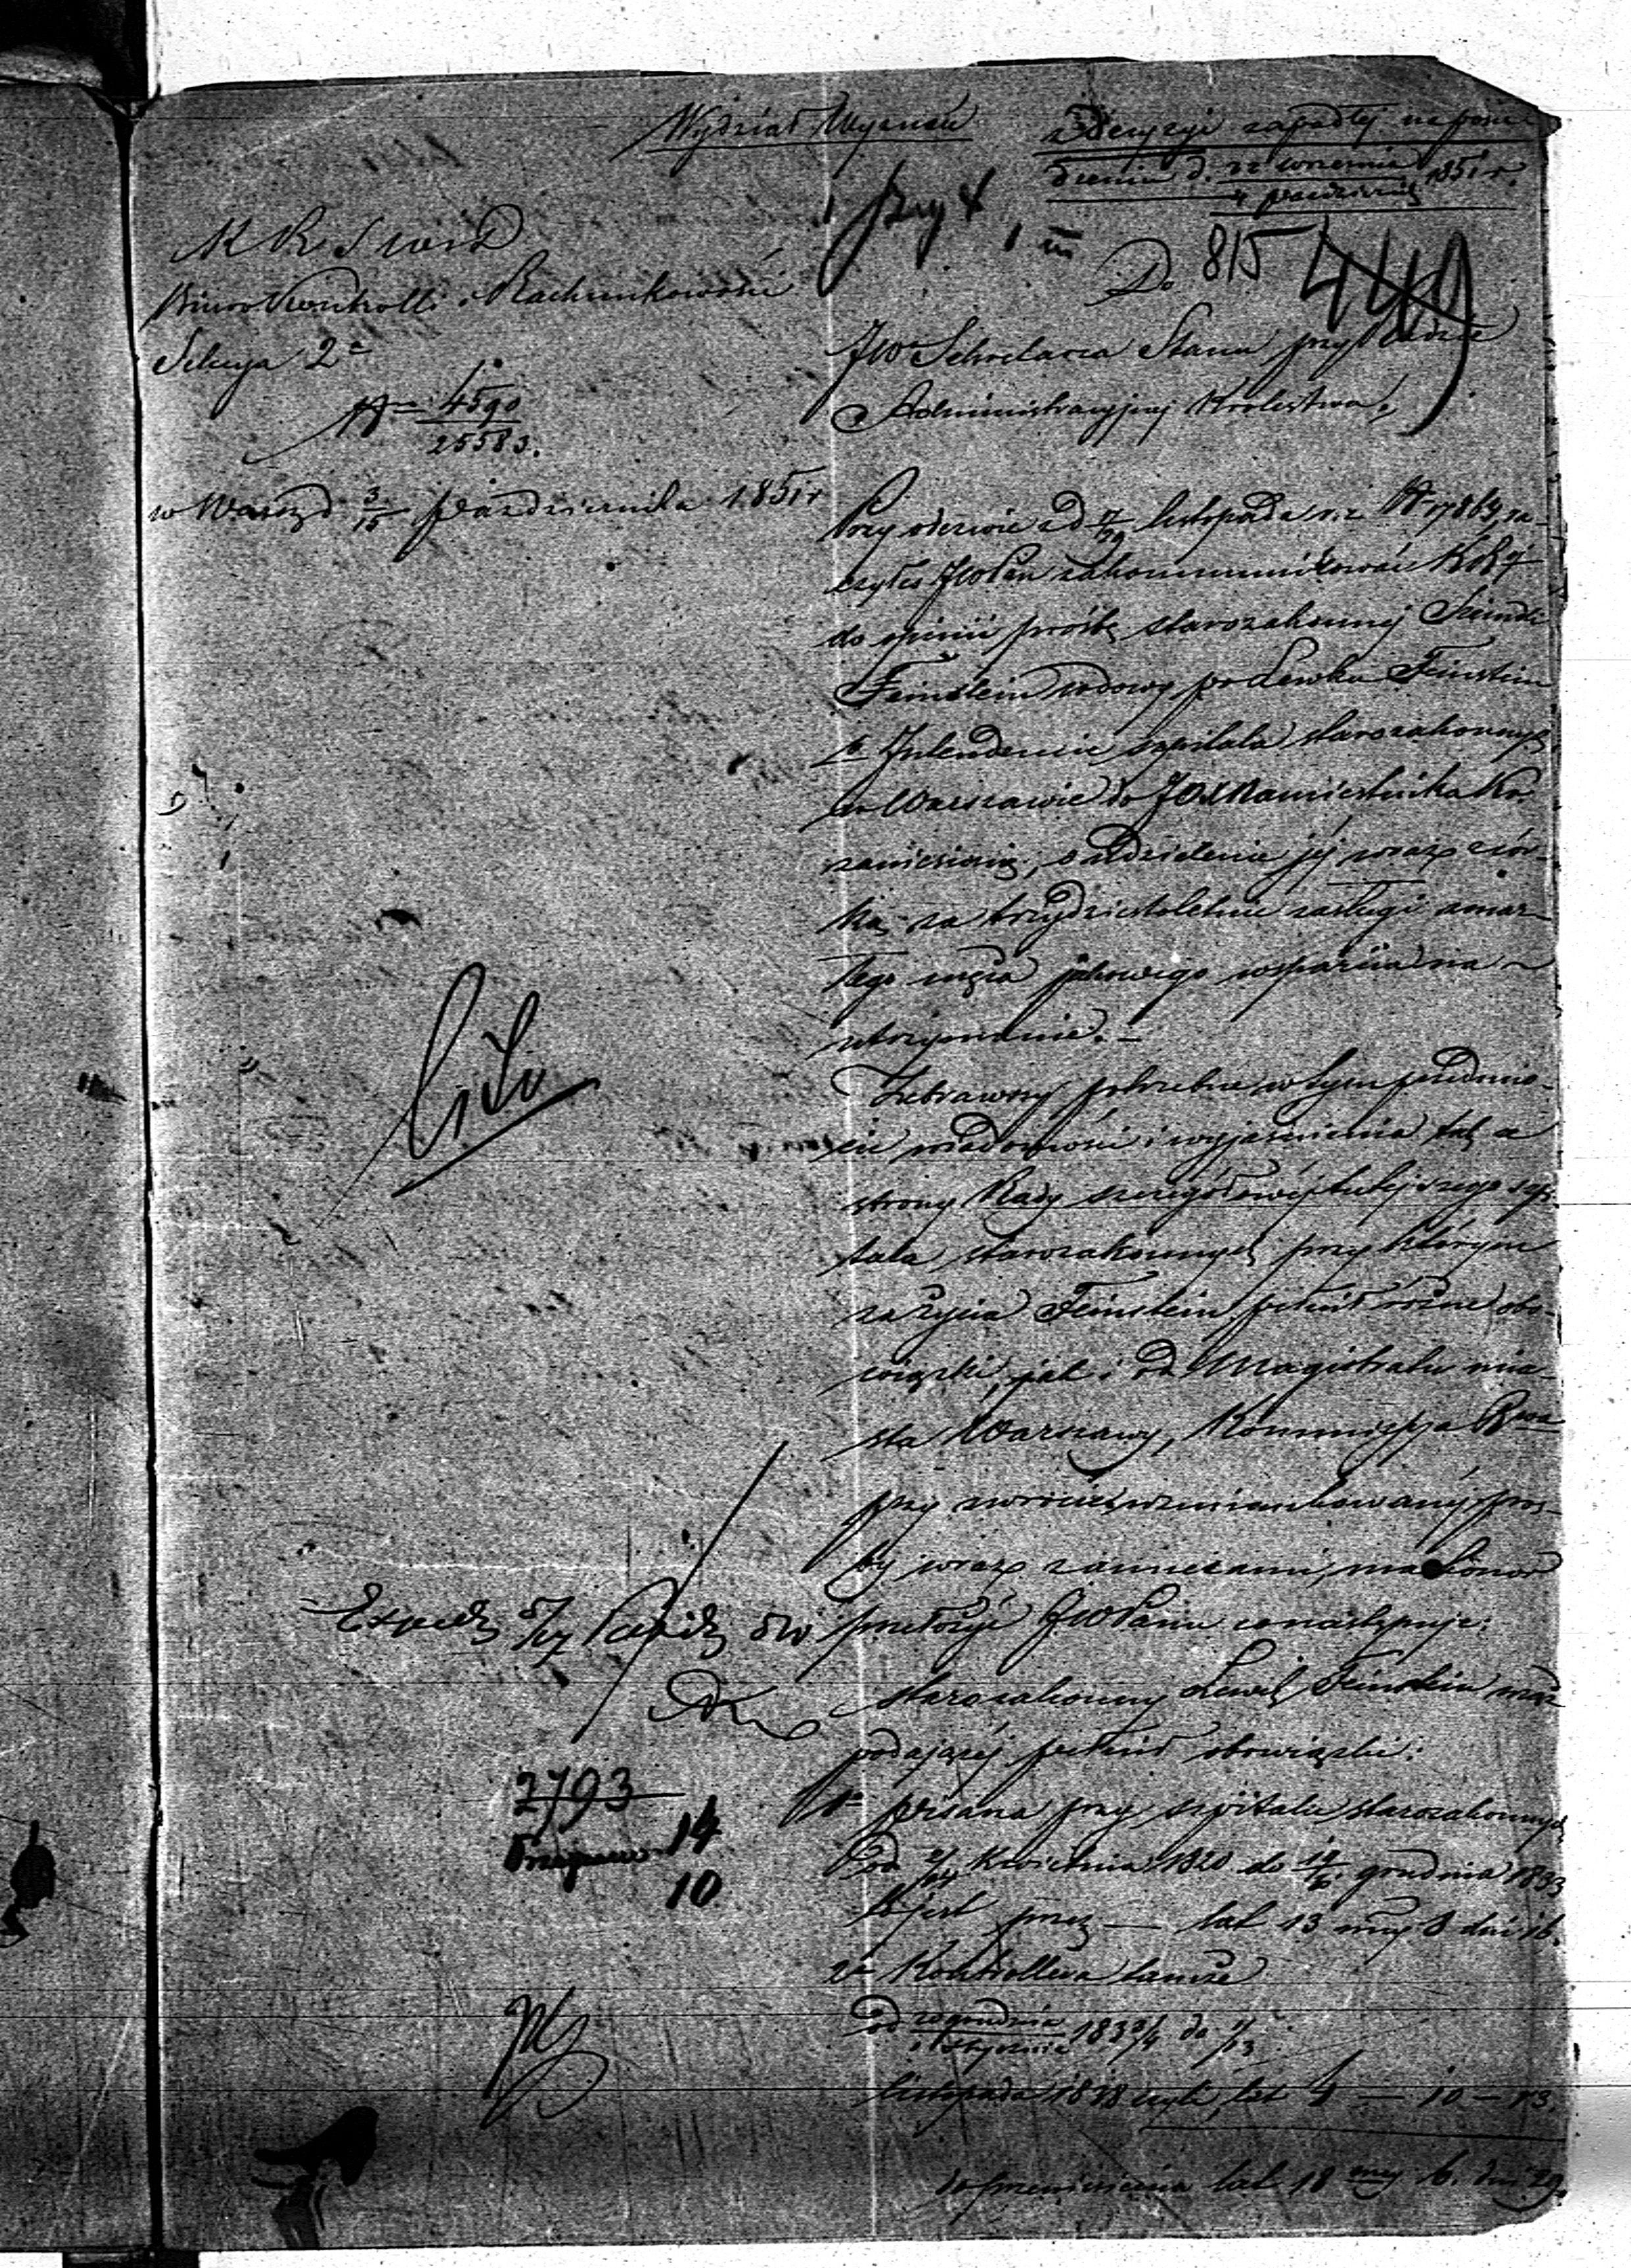 Wydział Wyznań
z Decyzyi zapadłej na posie
dzeniu d. 22 września 1851 r.
4 października
przy 4
Do 815
449
K R S W i D
Biuro Kontrolli i Rachunkowości
Sekcya 2a
No 4590
25583.
w Warsz d 3/15 Października 1851 r
JW Sekretarza Stanu przy Radzie
Administracyjnej Królestwa,
Przy odezwie z d 17/29 listopada r. z. No 17864, ra-
czyłeś JWPan zakommunikować KRj
do opinii prośbę starozakonnej
Feinstein wdowy po Lewku Feinstein
b. Intendencie szpitala starozakonnych
w Warszawie do JOX Namiestnika Kr.
zaniesioną, o udzielenie jej wraz z cór-
ką za trzydziestoletnie zasługi zmar-
łego męża jakowego wsparcia na
utrzymanie. –
Cito
Zebrawszy potrzebne w tym przedmio-
cie wiadomości i wyjaśnienia tak ze
strony Rady szczegółowej tutejszego szpi-
tala starozakonnych przy którym
za życia Feinstein pełnił różne obo-
wiązki, jak i od Magistratu mia-
sta Warszawy, Kommissya Rwa
przy zwrocie wzmiankowanej proś-
by wraz z annexami, ma honor
przełożyć JWPanu co następuje:
Exped 5/17 Paźdz 51
starozakonny Lewek Feinstein mąż
podającej pełnił obowiązki:
2793
14
10
1o pisarza przy szpitalu starozakonnych
od Kwietnia 1820 do 19/31 grudnia 1833
to jest przez — lat 13 mcy 8 dni 16.
2o Kontrollera tamże
od 20 grudnia 1833/4 do 1/13
1 stycznia
listopada 1838 czyli, lat 4 — 10 — 13.
do przeniesienia lat 18 mcy 6. dni 29.